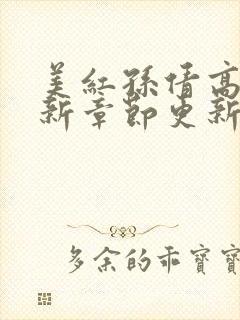 美红孙倩高
新章节更新
多余的乖宝宝